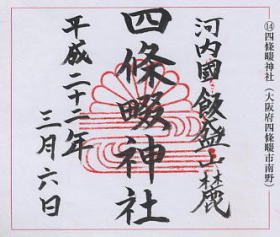 ⑭四條畷神社（大阪府四條畷市南野）
河内國飯盛山麓
四條畷神社
平成二十二年
三月六日